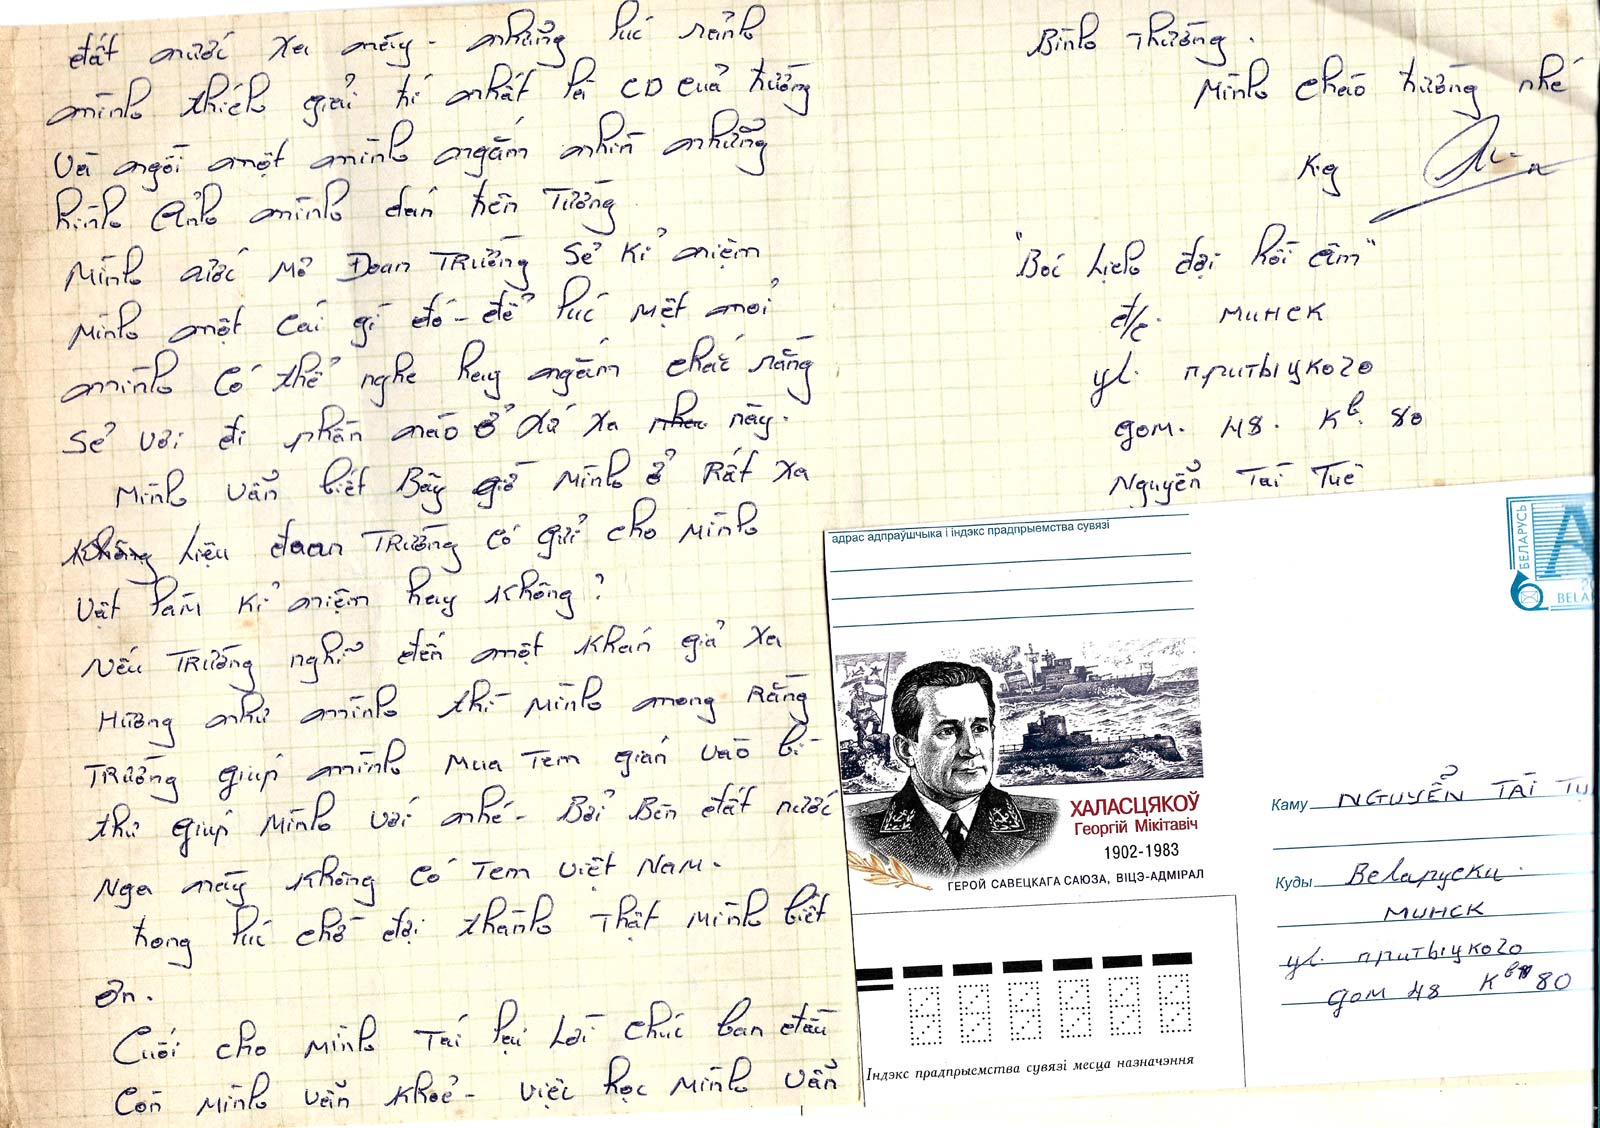 đất nước xa này - những lúc rảnh
mình thích giải trí nhất là CD của trường
và ngồi một mình ngắm nhìn những
hình ảnh mình dán trên Tường.
Mình ước mơ Đoan TRường Sẻ Kỉ niệm
Mình một cái gì đó - để lúc mệt mỏi
mình có thể nghe hay ngắm chắc rằng
Sẻ vơi đi phần nào ở xứ xa này.
Mình vẫn biết Bây giờ Mình ở Rất xa
Không hiệu đoan TRường có gửi cho Mình
Vật làm Kỉ niệm hay Không?
Nếu TRường nghĩ đến một Khán giả xa
Hương như mình thì Mình mong Rằng
TRường giúp mình mua Tem gián vào bì
thư giúp Mình với nhé - Bởi Bên đất nước
Nga này Không có Tem Việt Nam.
trong lúc chờ đợi thành Thật Mình biết
ơn.
Cuối cho Mình Tái lại Lời chúc ban đầu
Còn Mình vẫn Khoẻ - Việc học Mình vẫn
Bình Thường.
Mình chào trường nhé
K.g
"Bóc lịch đợi hồi âm"
đ/c. минск
ул. притыцкого
дом. 48. Кв. 80
Nguyễn Tài Tuệ
адрас адпраўшчыка і індэкс прадпрыемства сувязі
БЕЛАРУСЬ
A
BELA
ХАЛАСЦЯКОЎ
Георгій Мікітавіч
1902-1983
ГЕРОЙ САВЕЦКАГА САЮЗА, ВІЦЭ-АДМІРАЛ
Каму NGUYỄN TÀI TU
Куды
минск
ул. притыцкого
дом 48 Кв 80
Індэкс прадпрыемства сувязі месца назначэння